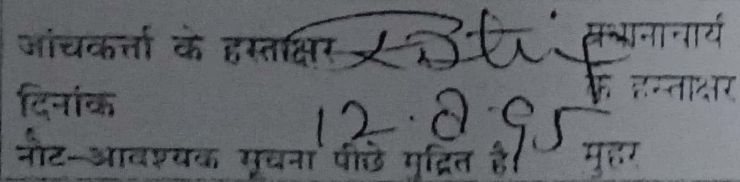 जांचकर्त्ता के हस्ताक्षर प्रधानाचार्य
के हस्ताक्षर
दिनांक 12.8.95
नोट-आवश्यक सूचना पीछे मुद्रित है। मुहर